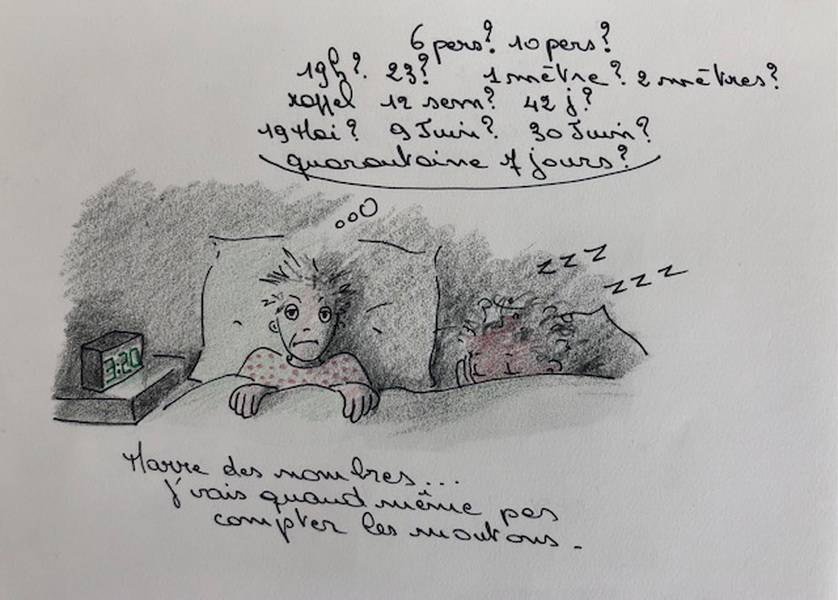 6 pers? 10 pers?
19h? 23? 1 mètre? 2 mètres?
rappel 12 sem? 42 j?
19 Mai? 9 Juin? 30 Juin?
quarantaine 7 jours?
z z z
z z z
3:20
Marre des nombres...
J'vais quand même pas
compter les moutons.